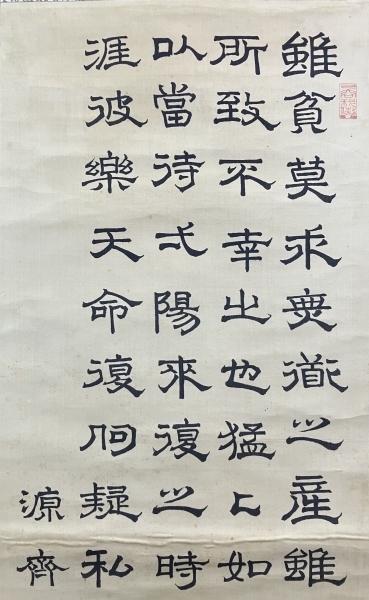 雖貧莫求無道之産雖
所致不幸㞢也猛〻如
以當待弌陽來復之時
涯彼樂天命復何疑私
源齊